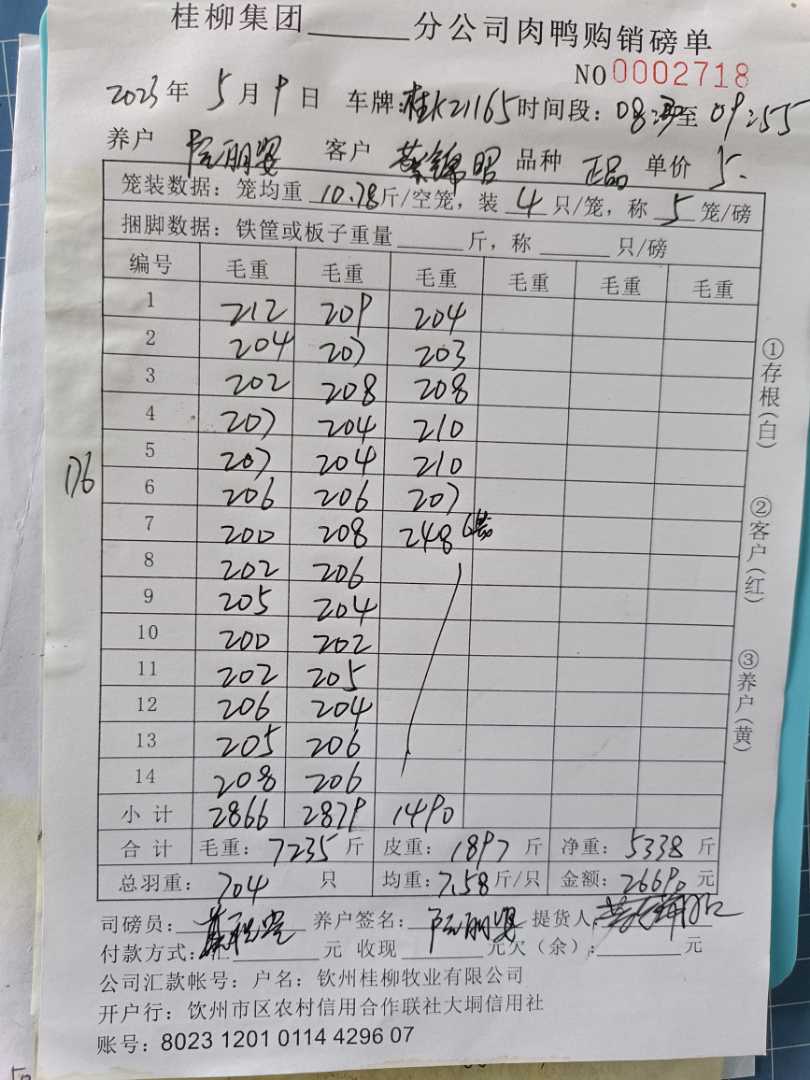 桂柳集团______分公司肉鸭购销磅单
NO 0002718
2023年 5月9日 车牌:桂K21165 时间段: 08: 至 09:55
养户 阮丽婴 客户 蔡锦昭 品种 正品 单价 5.
笼装数据: 笼均重 10.78斤/空笼, 装 4 只/笼, 称 5 笼/磅
捆脚数据: 铁筐或板子重量______斤, 称______只/磅
编号 毛重 毛重 毛重 毛重 毛重 毛重
1 212 209 204
2 204 207 203
3 202 208 208
4 207 204 210
5 207 204 210
6 206 206 207
7 200 208 248 6笼
8 202 206
9 205 204
10 200 202
11 202 205
12 206 204
13 205 206
14 208 206
小计 2866 2879 1490
合计 毛重: 7235 斤 皮重: 1897 斤 净重: 5338 斤
总羽重: 704 只 均重: 7.58斤/只 金额: 26690 元
司磅员: 养户签名: 阮丽婴 提货人:
付款方式: 汇______元 收现______元欠(余):______元
公司汇款帐号: 户名: 钦州桂柳牧业有限公司
开户行: 饮州市区农村信用合作联社大垌信用社
账号: 8023 1201 0114 4296 07
176
①存根(白)
②客户(红)
③养户(黄)